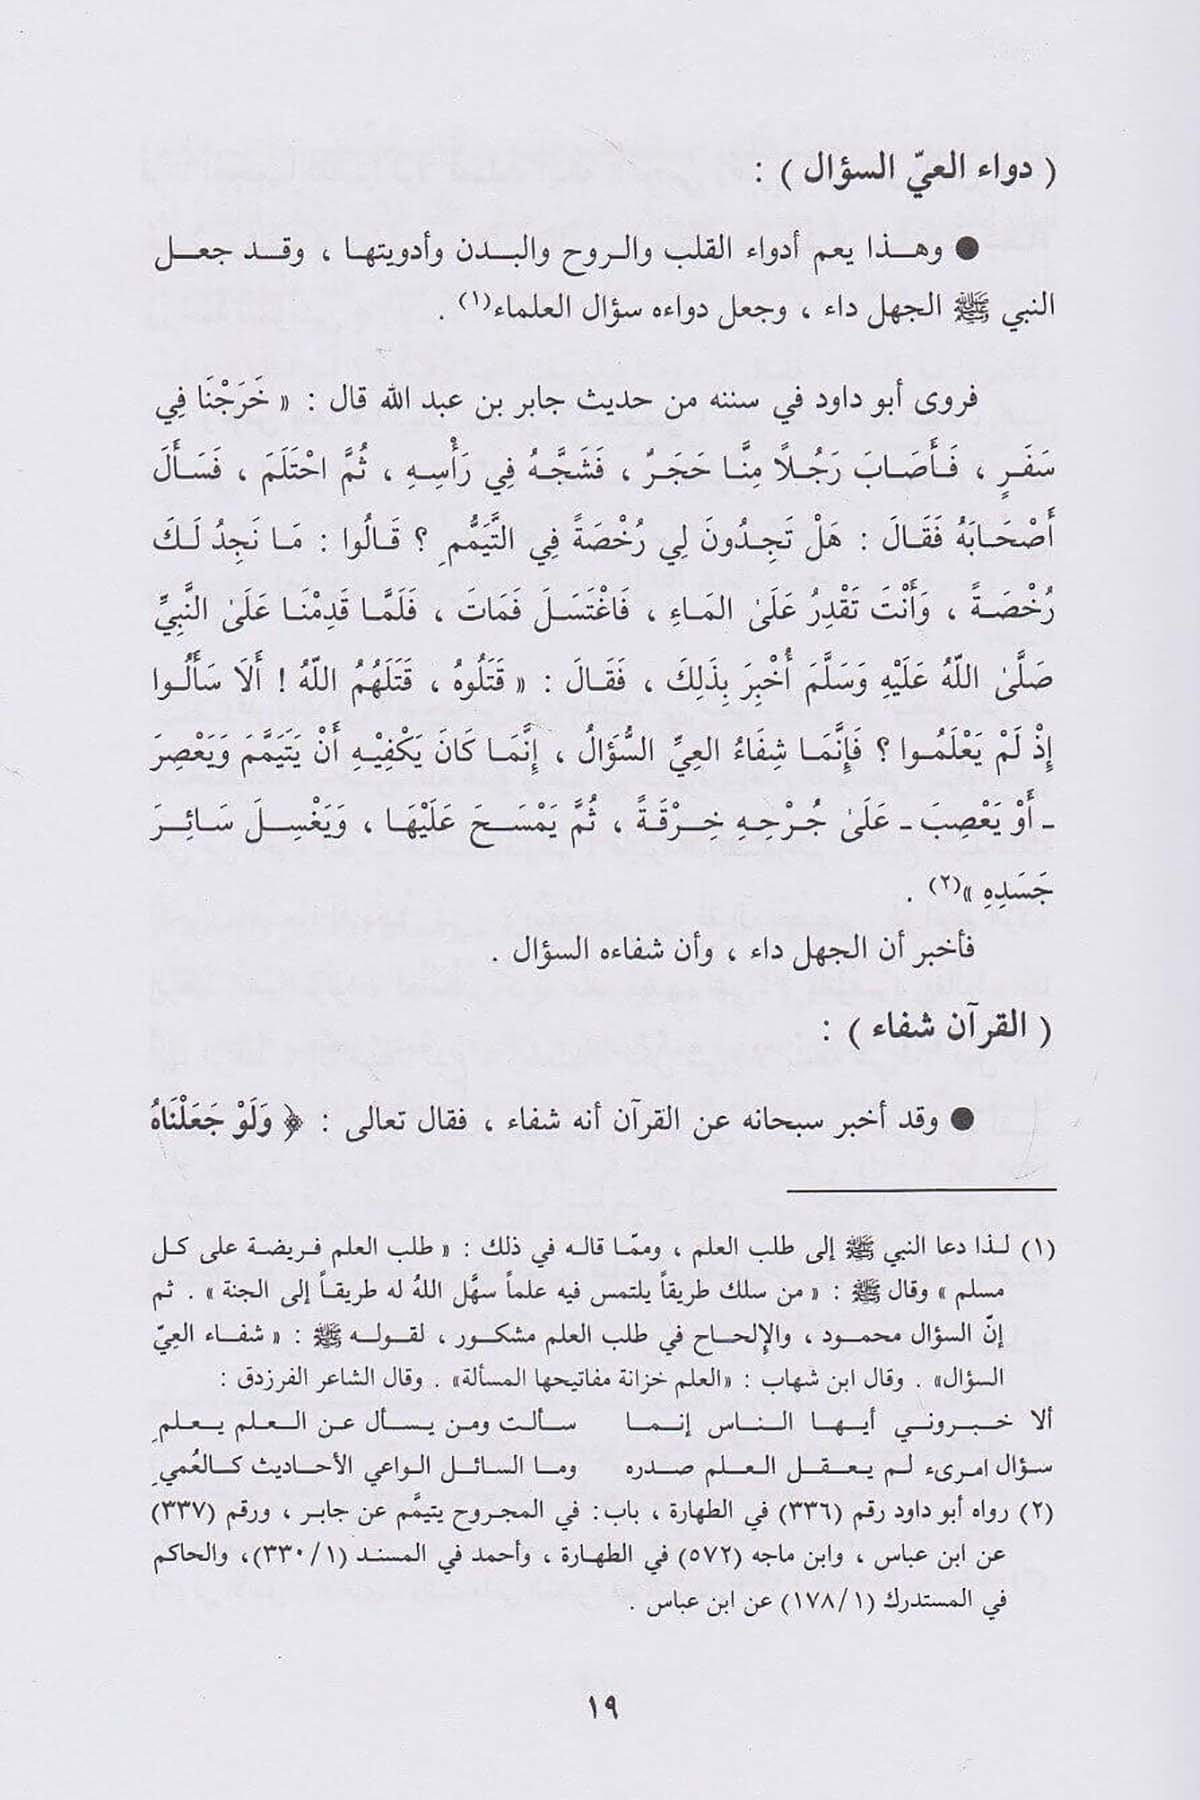 ( دواء العيّ السؤال ) :
● وهذا يعم أدواء القلب والروح والبدن وأدويتها ، وقد جعل
النبي ﷺ الجهل داء ، وجعل دواءه سؤال العلماء(١) .
فروى أبو داود في سننه من حديث جابر بن عبد الله قال : « خَرَجْنَا فِي
سَفَرٍ ، فَأَصَابَ رَجُلاً مِنَّا حَجَرٌ ، فَشَجَّهُ فِي رَأْسِهِ ، ثُمَّ احْتَلَمَ ، فَسَأَلَ
أَصْحَابَهُ فَقَالَ : هَلْ تَجِدُونَ لِي رُخْصَةً فِي التَّيَمُّمِ ؟ قَالُوا : مَا نَجِدُ لَكَ
رُخْصَةً ، وَأَنْتَ تَقْدِرُ عَلَىٰ المَاءِ ، فَاغْتَسَلَ فَمَاتَ ، فَلَمَّا قَدِمْنَا عَلَىٰ النَّبِيِّ
صَلَّىٰ اللّهُ عَلَيْهِ وَسَلَّمَ أُخْبِرَ بِذَلِكَ ، فَقَالَ : « قَتَلُوهُ ، قَتَلَهُمُ اللّهُ ! أَلَا سَأَلُوا
إِذْ لَمْ يَعْلَمُوا ؟ فَإِنَّمَا شِفَاءُ العِيِّ السُّؤَالُ ، إِنَّمَا كَانَ يَكْفِيْهِ أَنْ يَتَيَمَّمَ وَيَعْصِرَ
ـ أَوْ يَعْصِبَ ـ عَلَىٰ جُرْحِهِ خِرْقَةً ، ثُمَّ يَمْسَحَ عَلَيْهَا ، وَيَغْسِلَ سَائِرَ
جَسَدِهِ »(٢) .
فأخبر أن الجهل داء ، وأن شفاءه السؤال .
( القرآن شفاء ) :
● وقد أخبر سبحانه عن القرآن أنه شفاء ، فقال تعالى : ﴿ وَلَوْ جَعَلْنَاهُ
(١) لذا دعا النبي ﷺ إلى طلب العلم ، وممّا قاله في ذلك : « طلب العلم فريضة على كل
مسلم » وقال ﷺ : « من سلك طريقاً يلتمس فيه علماً سهَّل اللهُ له طريقاً إلى الجنة » . ثم
إنّ السؤال محمود ، والإلحاح في طلب العلم مشكور ، لقوله ﷺ : « شفاء العِيّ
السؤال» . وقال ابن شهاب : «العلم خزانة مفاتيحها المسألة» . وقال الشاعر الفرزدق :
ألا خبروني أيها الناس إنما سألت ومن يسأل عن العلم يعلمِ
سؤال امرىء لم يعقل العلم صدره وما السائل الواعي الأحاديث كالعُميِ
(٢) رواه أبو داود رقم (٣٣٦) في الطهارة ، باب: في المجروح يتيمَّم عن جابر ، ورقم (٣٣٧)
عن ابن عباس ، وابن ماجه (٥٧٢) في الطهارة ، وأحمد في المسند (١/ ٣٣٠)، والحاكم
في المستدرك (١/ ١٧٨) عن ابن عباس .
١٩